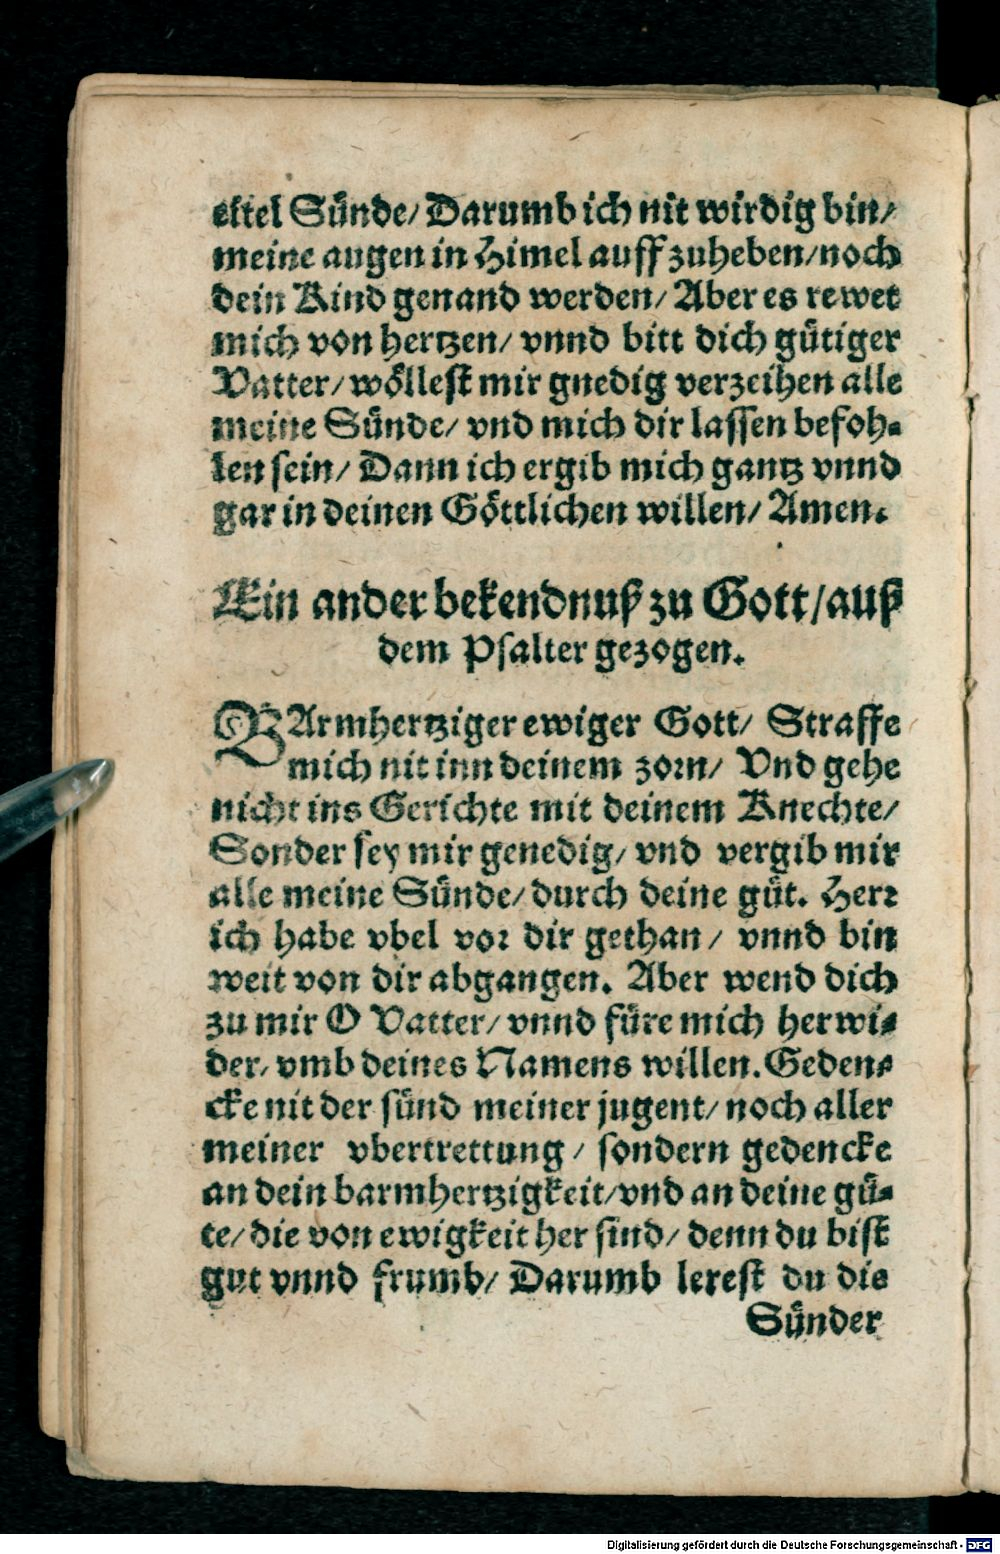 eitel Sünde/ Darumb ich nit wirdig bin/
meine augen in Himel auff zuheben/ noch
dein Kind genand werden/ Aber es rewet
mich von hertzen/ vnnd bitt dich gütiger
Vatter/ wöllest mir gnedig verzeihen alle
meine Sünde/ vnd mich dir lassen befoh-
len sein/ Dann ich ergib mich gantz vnnd
gar in deinen Göttlichen willen/ Amen.
Ein ander bekendnuß zu Gott/ auß
dem Psalter gezogen.
BArmhertziger ewiger Gott/ Straffe
mich nit inn deinem zorn/ Vnd gehe
nicht ins Gerichte mit deinem Knechte/
Sonder sey mir genedig/ vnd vergib mir
alle meine Sünde/ durch deine güt. Herr
ich habe vbel vor dir gethan/ vnnd bin
weit von dir abgangen. Aber wend dich
zu mir O Vatter/ vnnd füre mich herwi-
der/ vmb deines Namens willen. Geden-
cke nit der sünd meiner jugent/ noch aller
meiner vbertrettung/ sondern gedencke
an dein barmhertzigkeit/ vnd an deine gü-
te/ die von ewigkeit her sind/ denn du bist
gut vnnd frumb/ Darumb lerest du die
Sünder
Digitalisierung gefördert durch die Deutsche Forschungsgemeinschaft - DFG